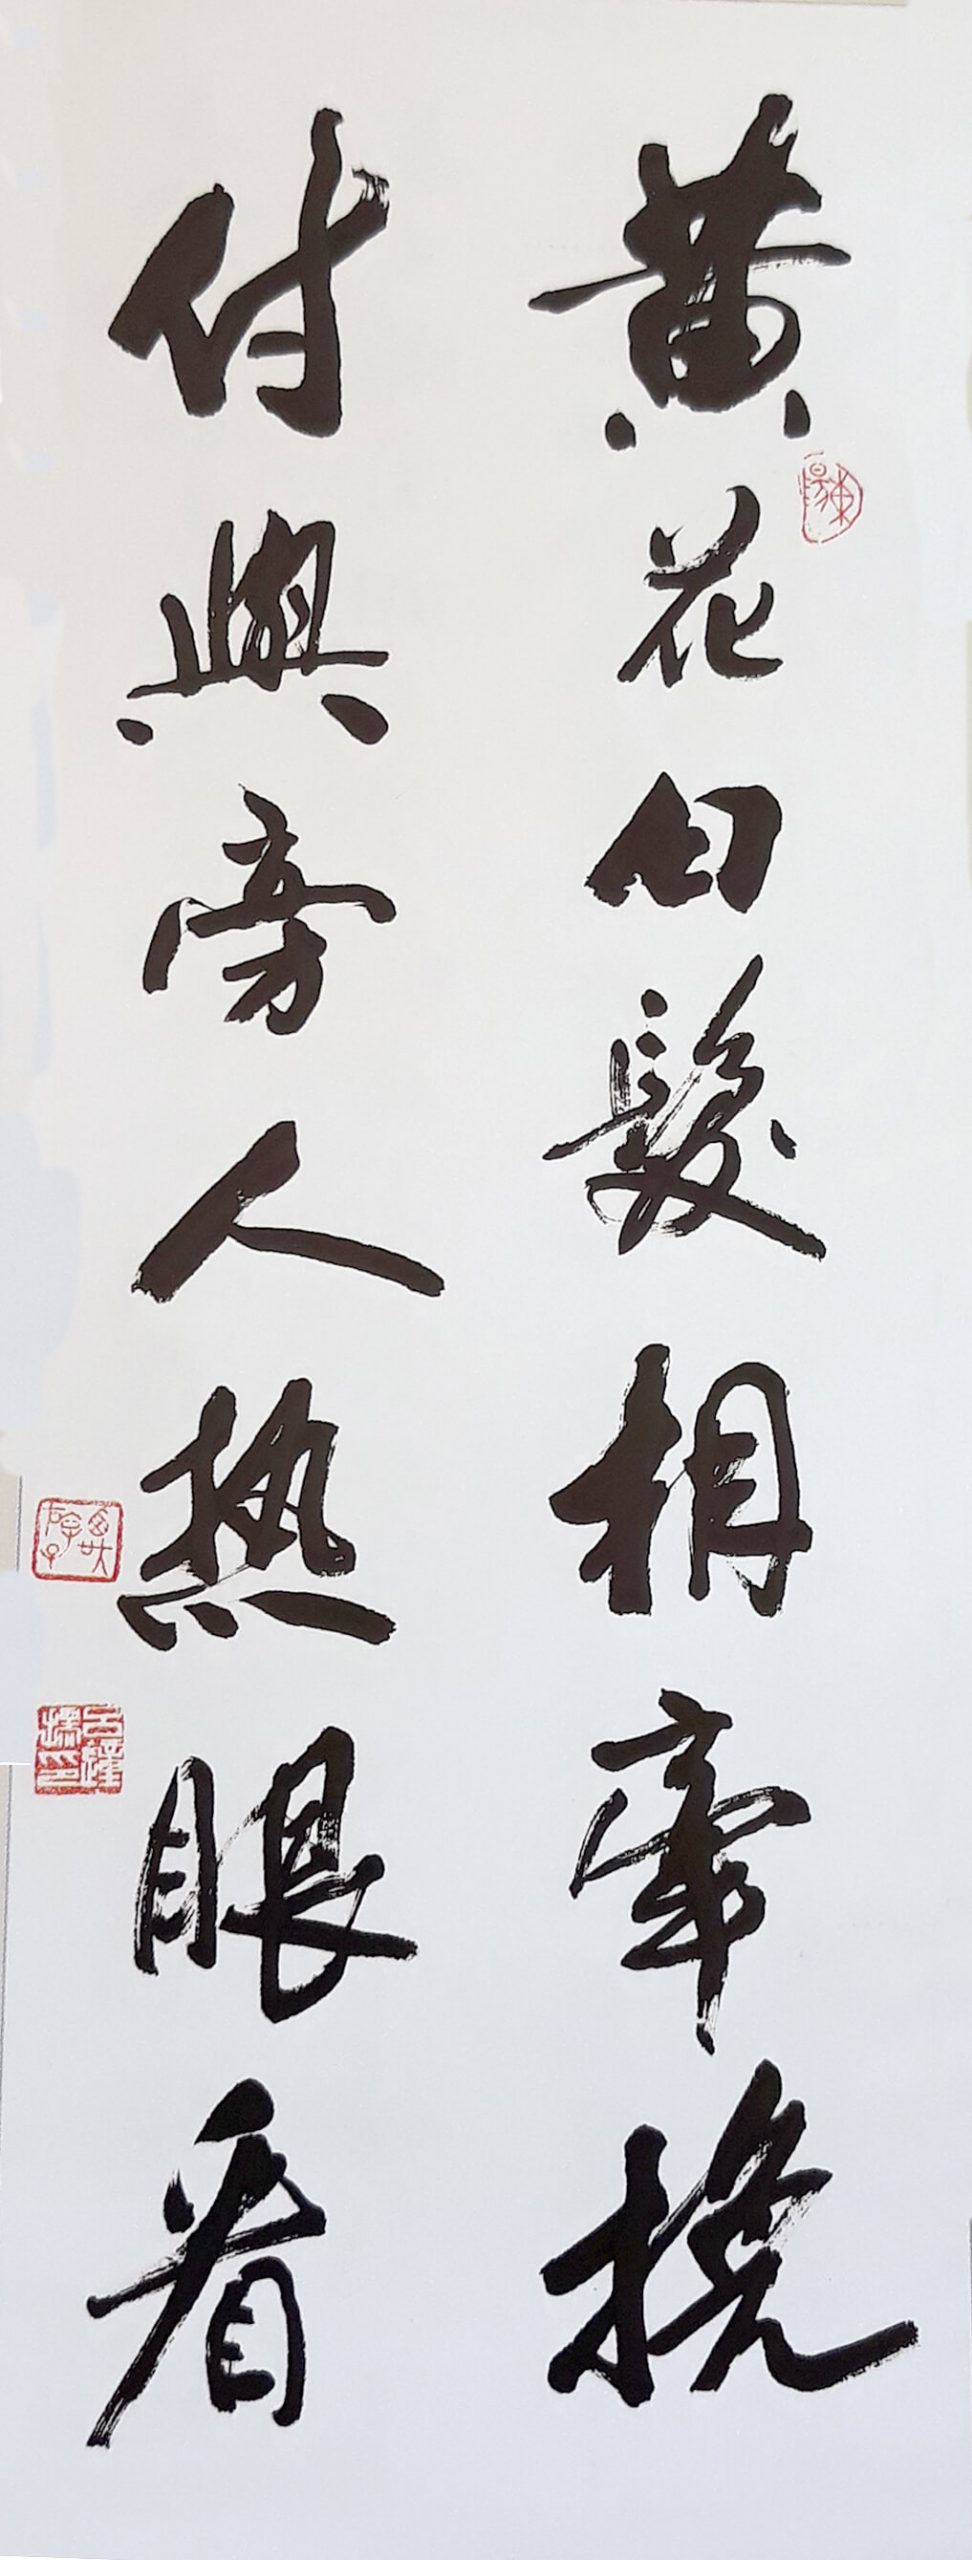 黄花白髮相牽挽
付與旁人热眼看